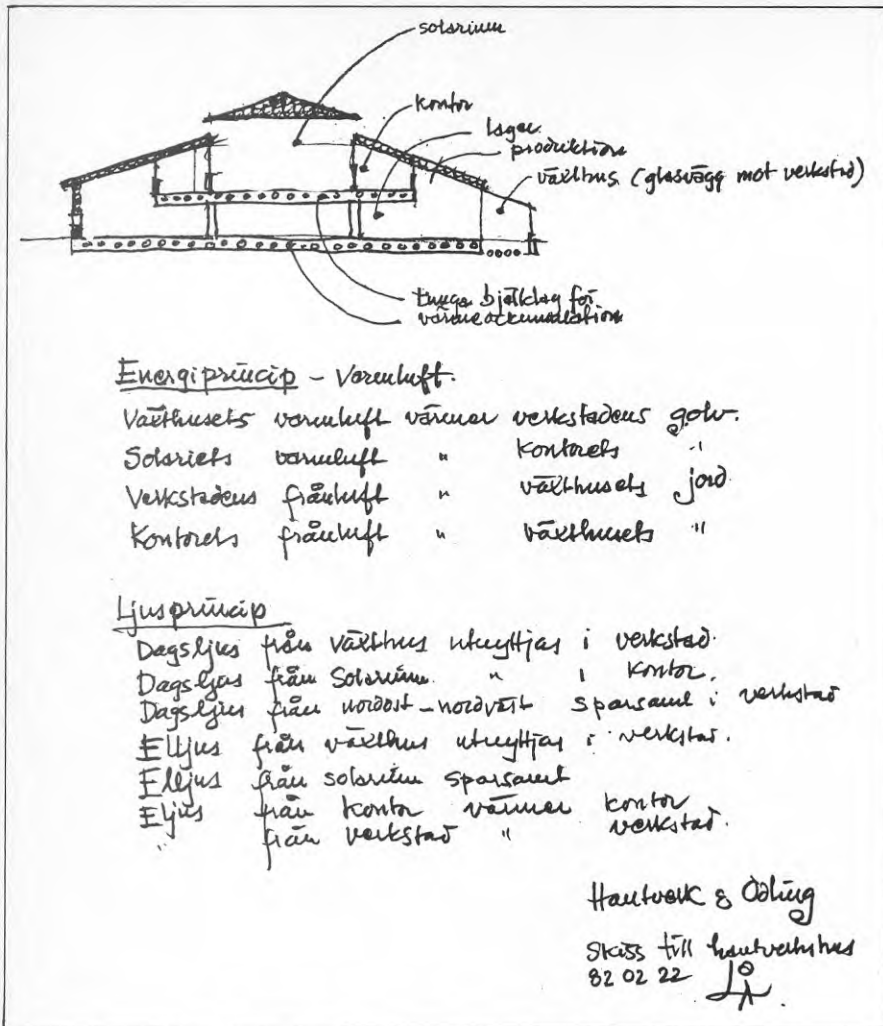 solarium
kontor
lager
produktion
växthus (glasvägg mot verkstad)
tunga bjälklag för
värmeackumulation
Energiprincip - Varmluft.
Växthusets varmluft värmer verkstadens golv.
Solariets varmluft " kontorets "
Verkstadens frånluft " växthusets jord
Kontorets frånluft " växthusets "
Ljusprincip
Dagsljus från växthus utnyttjas i verkstad.
Dagsljus från Solarium " i kontor.
Dagsljus från nordost - nordväst sparsamt i verkstad
Elljus från växthus utnyttjas i verkstad.
Elljus från solarium sparsamt
Eljus från kontor värmer kontor
" från verkstad " verkstad.
Hantverk & Odling
Skiss till hantverkshus
82 02 22